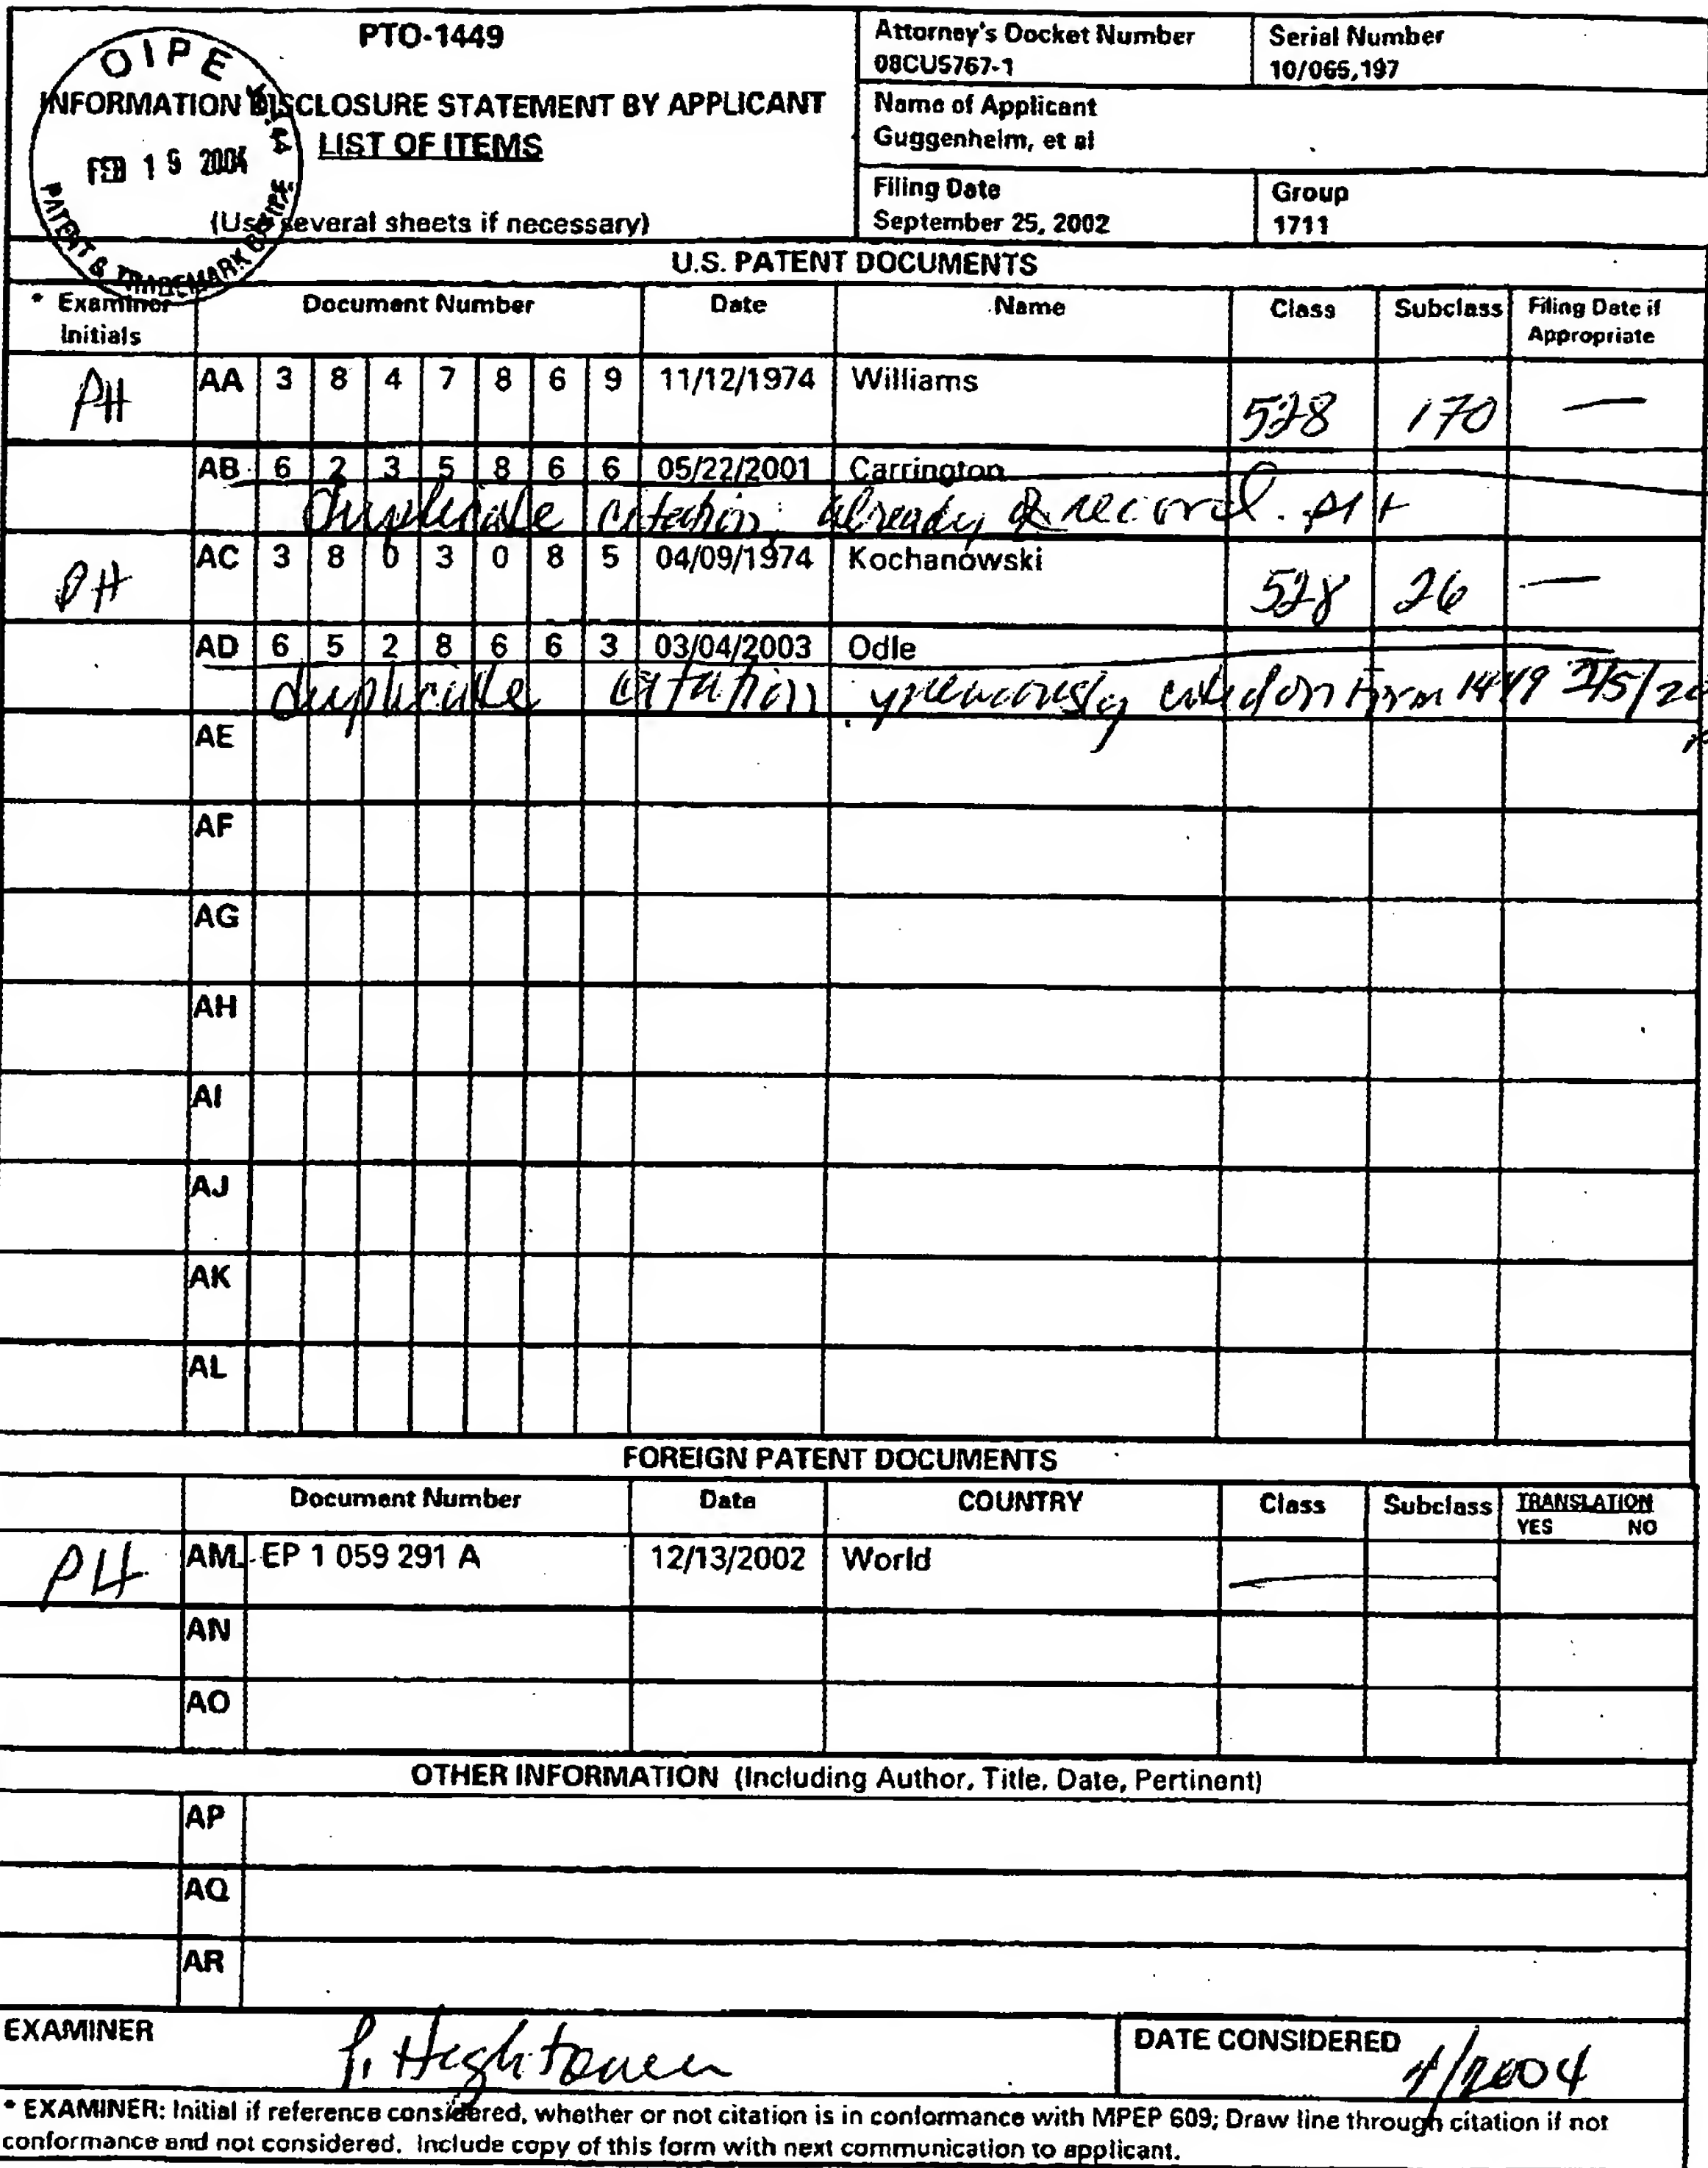 PTO-1449
INFORMATION DISCLOSURE STATEMENT BY APPLICANT
LIST OF ITEMS
(Use several sheets if necessary)
OIPE
FEB 19 2004
PATENT & TRADEMARK
Attorney's Docket Number
08CU5767-1
Serial Number
10/065,197
Name of Applicant
Guggenheim, et al
Filing Date
September 25, 2002
Group
1711
U.S. PATENT DOCUMENTS
* Examiner Initials Document Number Date Name Class Subclass Filing Date if Appropriate
PH AA 3 8 4 7 8 6 9 11/12/1974 Williams 528 170 —
AB 6 2 3 5 8 6 6 05/22/2001 Carrington
duplicate citation, already of record. PH
PH AC 3 8 0 3 0 8 5 04/09/1974 Kochanowski 528 26 —
AD 6 5 2 8 6 6 3 03/04/2003 Odle
duplicate citation previously cited on Form 1449
AE
AF
AG
AH
AI
AJ
AK
AL
FOREIGN PATENT DOCUMENTS
Document Number Date COUNTRY Class Subclass TRANSLATION
YES NO
PH AM EP 1 059 291 A 12/13/2002 World
AN
AO
OTHER INFORMATION (Including Author, Title, Date, Pertinent)
AP
AQ
AR
EXAMINER P. Hightower DATE CONSIDERED 4/2004
* EXAMINER: Initial if reference considered, whether or not citation is in conformance with MPEP 609; Draw line through citation if not
conformance and not considered. Include copy of this form with next communication to applicant.